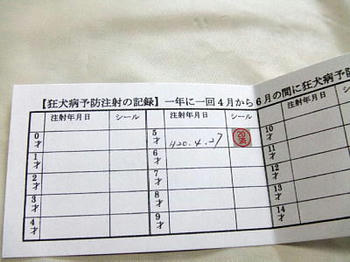 【狂犬病予防注射の記録】一年に一回4月から6月の間に狂犬病予
注射年月日 シール 注射年月日 シール 注射年月
0才 5才 H20.4.27 10才
1才 6才 11才
2才 7才 12才
3才 8才 13才
4才 9才 14